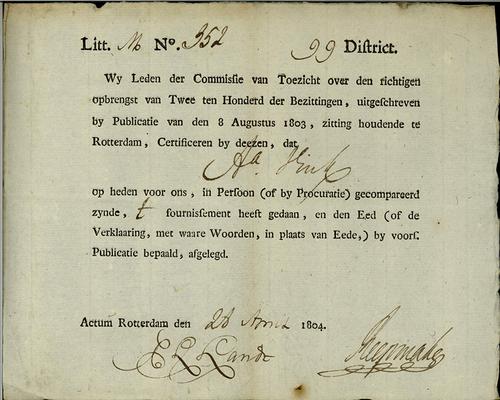 Litt. M No. 352 99 District.
Wy Leden der Commissie van Toezicht over den richtigen
opbrengst van Twee ten Honderd der Bezittingen, uitgeschreven
by Publicatie van den 8 Augustus 1803, zitting houdende te
Rotterdam, Certificeren by deezen, dat
op heden voor ons, in Persoon (of by Procuratie) gecompareerd
zynde, t fournissement heeft gedaan, en den Eed (of de
Verklaaring, met waare Woorden, in plaats van Eede,) by voors.
Publicatie bepaald, afgelegd.
Actum Rotterdam den April 1804.